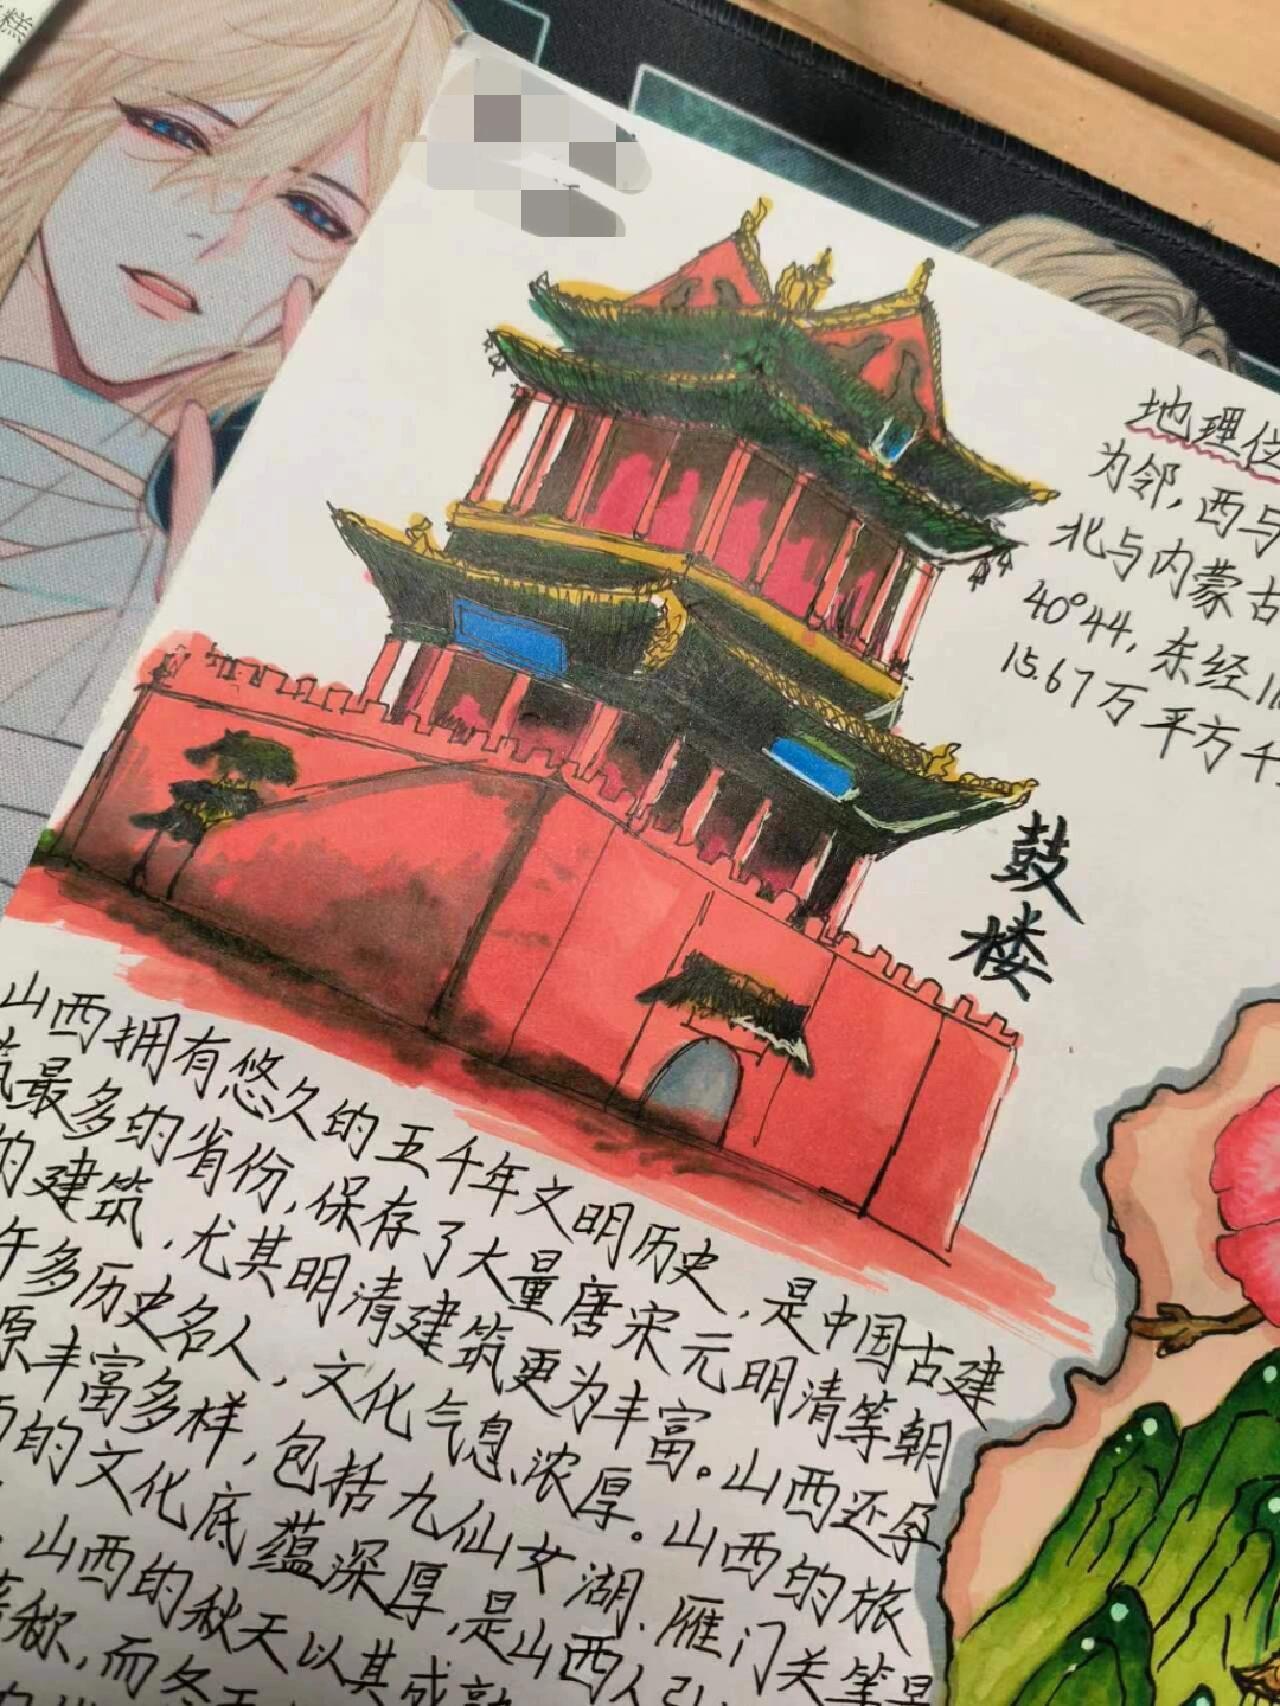 糕
地理位
为邻,西与
北与内蒙古
40°44,东经11
15.67万平方千
鼓
楼
山西拥有悠久的五千年文明历史,是中国古建
筑最多的省份,保存了大量唐宋元明清等朝
的建筑,尤其明清建筑更为丰富。山西还孕
多历史名人,文化气息浓厚。山西的旅
源丰富多样,包括九仙女湖、雁门关等景
的文化底蕴深厚,是山西人引
山西的秋天以其成熟
称,而冬